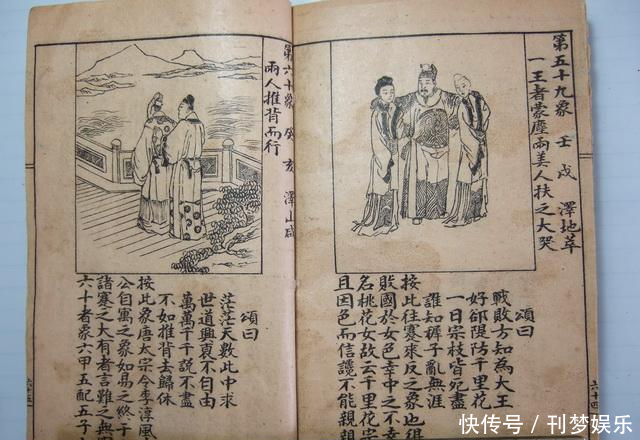 第五十九象 壬戌 澤地萃
一王者蒙塵兩美人扶之大哭
頌曰
戰敗方知為大王
好郤隄防千里花
一日宗枝皆死盡
誰知褲子亂無涯
按此往蹇來反之象也
敗國於女色幸中之不幸
名桃花女故云千里花宗
且因色而信讒不能親
第六十象 癸亥 澤山咸
兩人推背而行
頌曰
茫茫天數此中求
世道興衰不自由
萬萬千千說不盡
不如推背去歸休
按此象唐太宗令李淳風
公自寓之象如易之終于
諸蹇之大有者言雖之與
六十者象六甲五配五子
六十四
快传号/刊梦娱乐